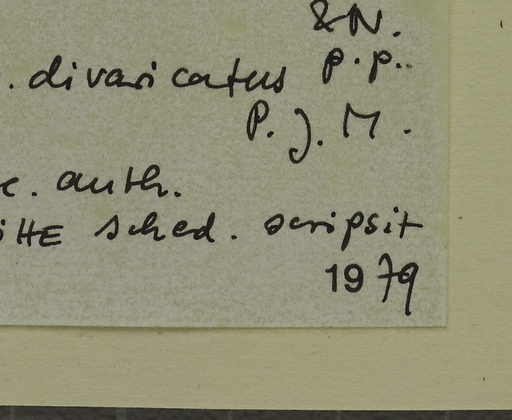 &N.
. divaricatus p.p..
P. J. M.
c. auth.
iHE sched. scripsit
1979